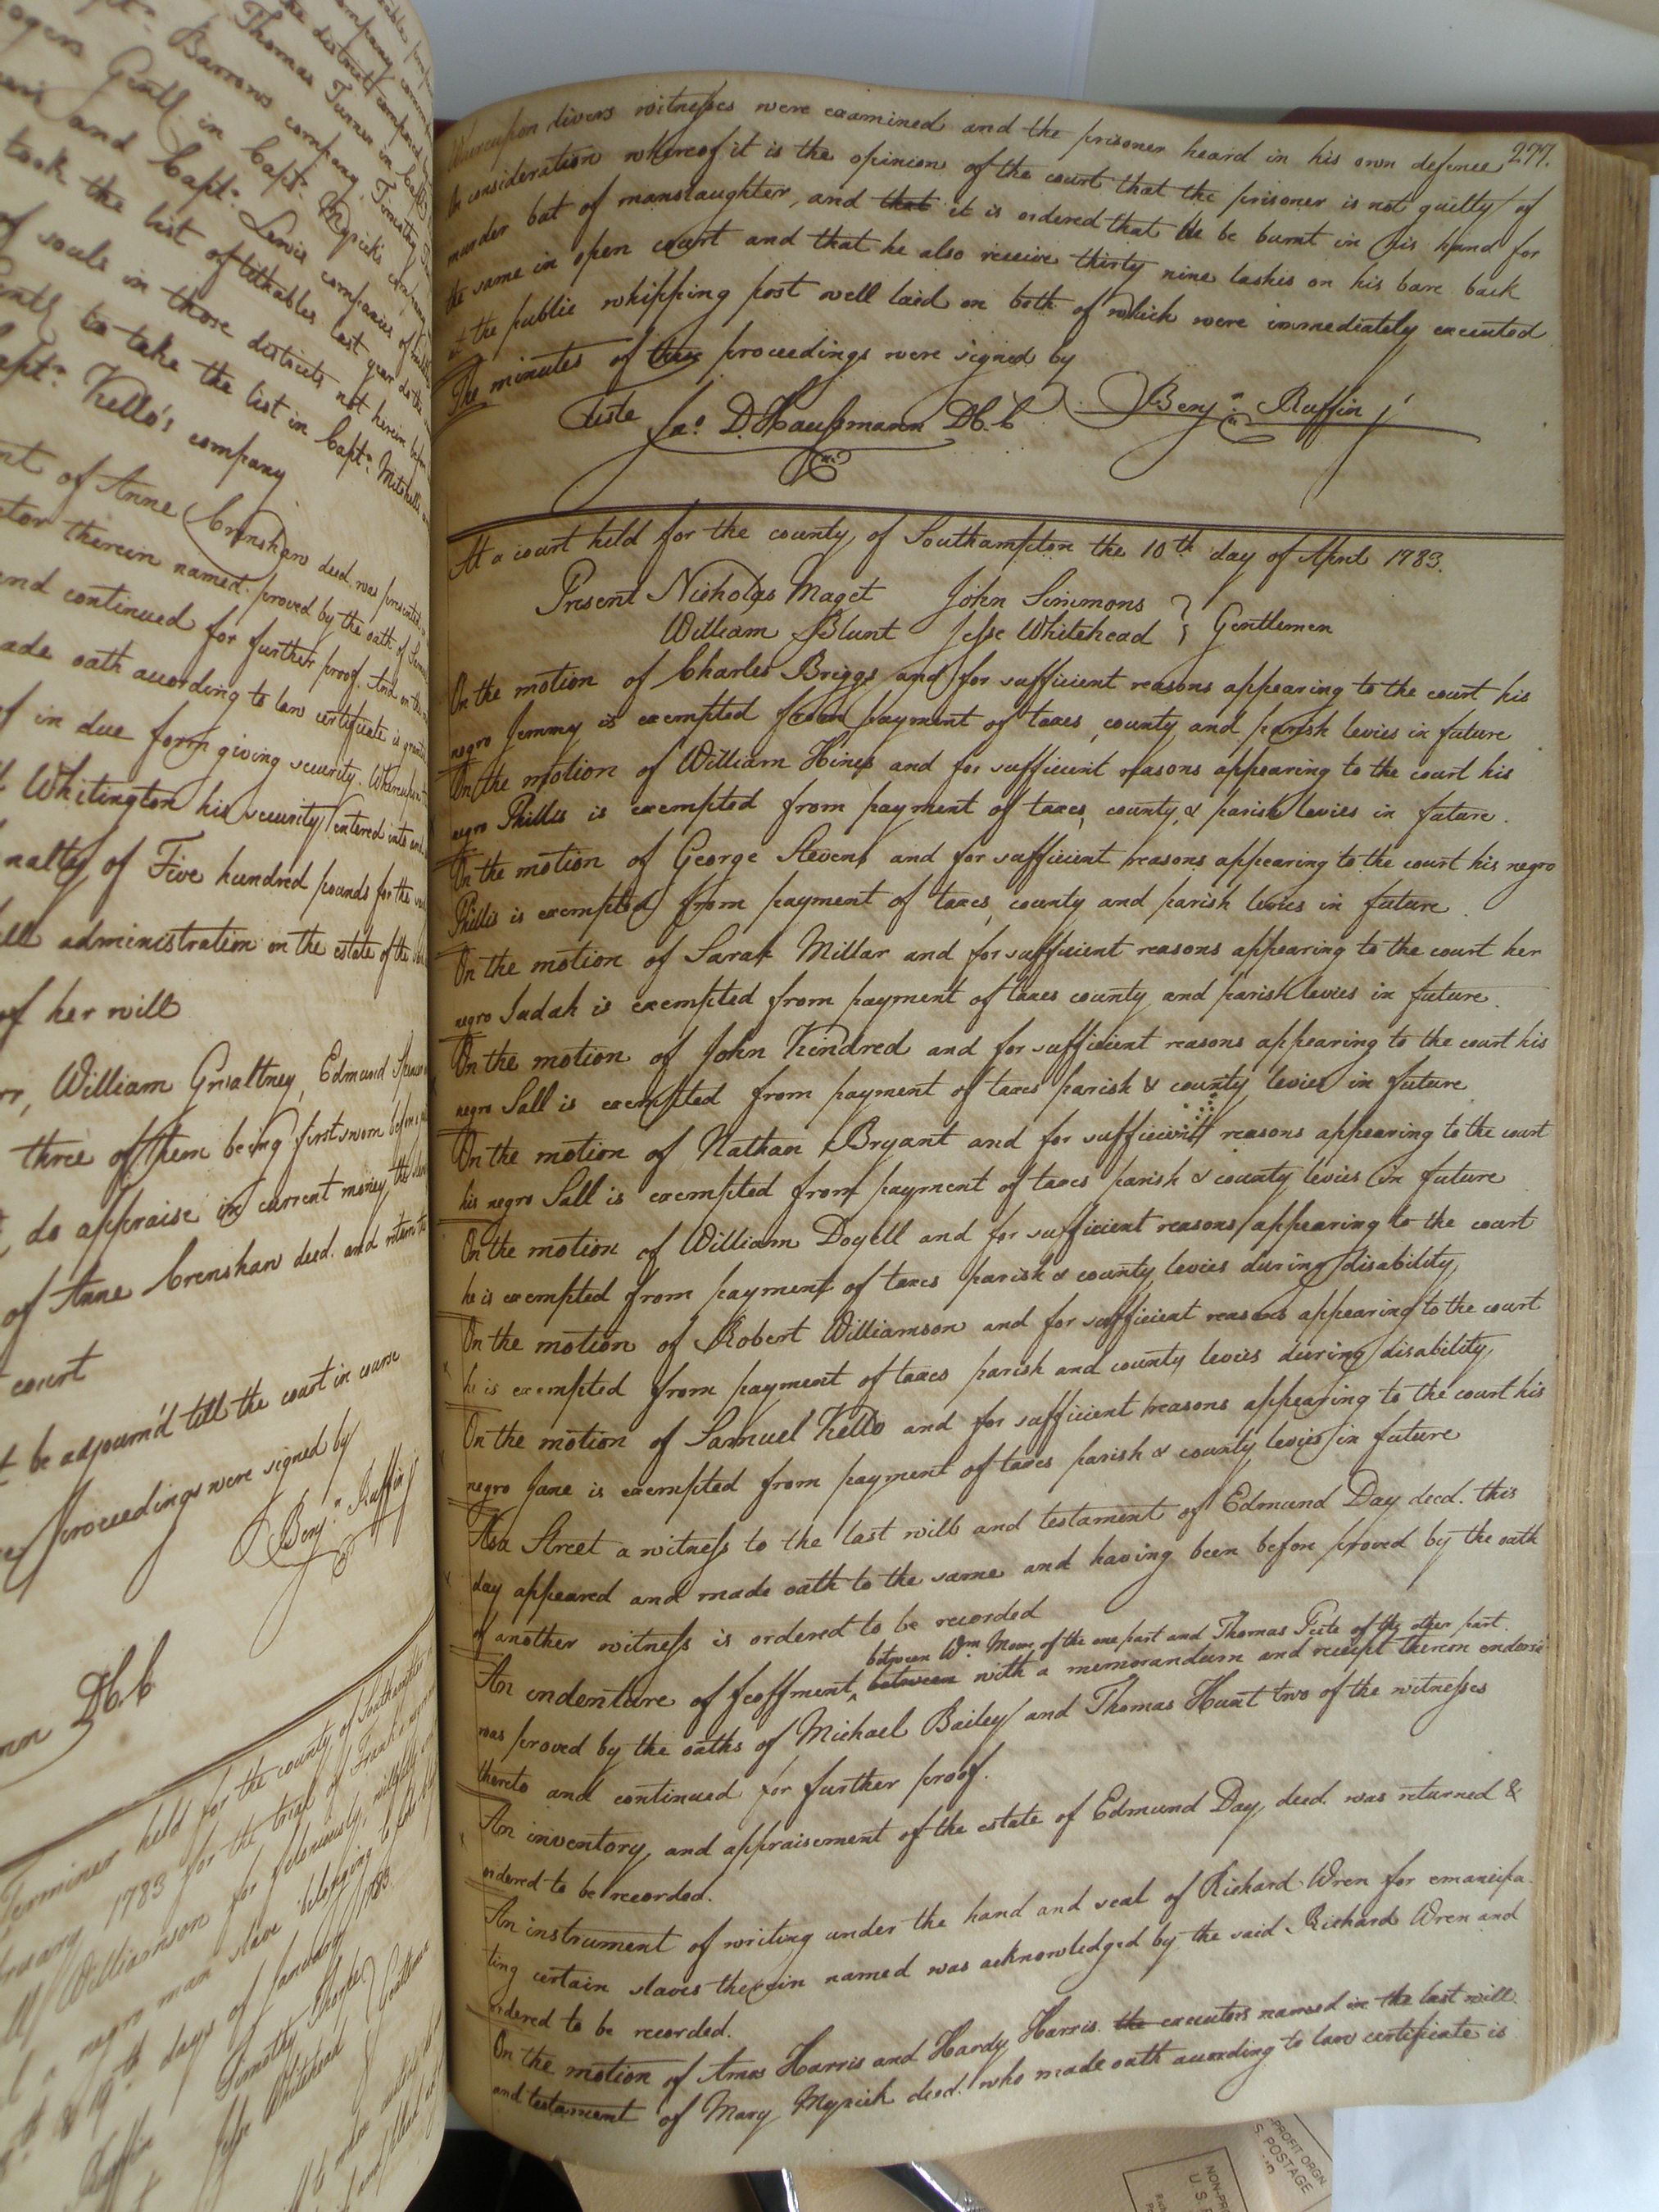 Thomas Turner in Capt.
Barrows company. Timothy
Gentl. in Capt. Myrick's company
and Capt. Lewis companies of
took the list of tithables last year do the
of souls in those districts not herein before
to take the list in Capt. Mitchells
Capt. Kello's company
of Anne Crenshaw deed. was presented
therein named. proved by the oath of
and continued for further proof. And on the
made oath according to law certificate is
in due form giving security. Whereupon
Whitington his security entered into
of Five hundred pounds for the
administration on the estate of the
of her will
William Gwaltney, Edmund
three of them being first sworn before
do appraise in current money, the
of Anne Crenshaw deed. and return
court
be adjourn'd till the court in course
proceedings were signed by
Benjn. Ruffin
D.C.C
Terminer held for the county of Southampton
1783 for the trial of Frank a negro
Williamson for feloniously, willfully
a negro man slave belonging to
& 9th days of January 1783.
Timothy Thorpe
Ruffin Jesse Whitehead Gentlemen
277.
Whereupon divers witnesses were examined and the prisoner heard in his own defence
In consideration whereof it is the opinion of the court that the prisoner is not guilty of
murder but of manslaughter, and that it is ordered that he be burnt in his hand for
the same in open court and that he also receive thirty nine lashes on his bare back
at the public whipping post well laid on both of which were immediately executed
The minutes of these proceedings were signed by
Teste Jas. D. Haussmann D.C.C Benjn. Ruffin
At a court held for the county of Southampton the 10th day of April 1783.
Present Nicholas Maget John Simmons
William Blunt Jesse Whitehead } Gentlemen
On the motion of Charles Briggs and for sufficient reasons appearing to the court his
negro Jemmy is exempted from payment of taxes, county, and parish levies in future
On the motion of William Hines and for sufficient reasons appearing to the court his
negro Phillis is exempted from payment of taxes, county, & parish levies in future.
On the motion of George Stevens and for sufficient reasons appearing to the court his negro
Phillis is exempted from payment of taxes, county and parish levies in future.
On the motion of Sarah Millar and for sufficient reasons appearing to the court her
negro Judah is exempted from payment of taxes county and parish levies in future.
On the motion of John Kindred and for sufficient reasons appearing to the court his
negro Sall is exempted from payment of taxes parish & county levies in future
On the motion of Nathan Bryant and for sufficient reasons appearing to the court
his negro Sall is exempted from payment of taxes parish & county levies in future
On the motion of William Doyell and for sufficient reasons appearing to the court
he is exempted from payment of taxes parish & county levies during disability,
On the motion of Robert Williamson and for sufficient reasons appearing to the court
he is exempted from payment of taxes parish and county levies during disability,
On the motion of Samuel Kello and for sufficient reasons appearing to the court his
negro Jane is exempted from payment of taxes parish & county levies in future
Asa Street a witness to the last will and testament of Edmund Day deed. this
day appeared and made oath to the same and having been before proved by the oath
of another witness is ordered to be recorded
between Wm. Moore of the one part and Thomas Peete of the other part.
An indenture of feoffment, between with a memorandum and receipt thereon endorsed
was proved by the oaths of Michael Bailey and Thomas Hunt two of the witnesses
thereto and continued for further proof.
An inventory, and appraisement of the estate of Edmund Day, deed. was returned &
ordered to be recorded.
An instrument of writing under the hand and seal of Richard Wren for emancipa-
ting certain slaves therein named was acknowledged by the said Richard Wren and
ordered to be recorded.
On the motion of Amos Harris and Hardy Harris the executors named in the last will
and testament of Mary Myrick deed. who made oath according to law certificate is
PROFIT ORGN.
S. POSTAGE
NON-PR
U.S.